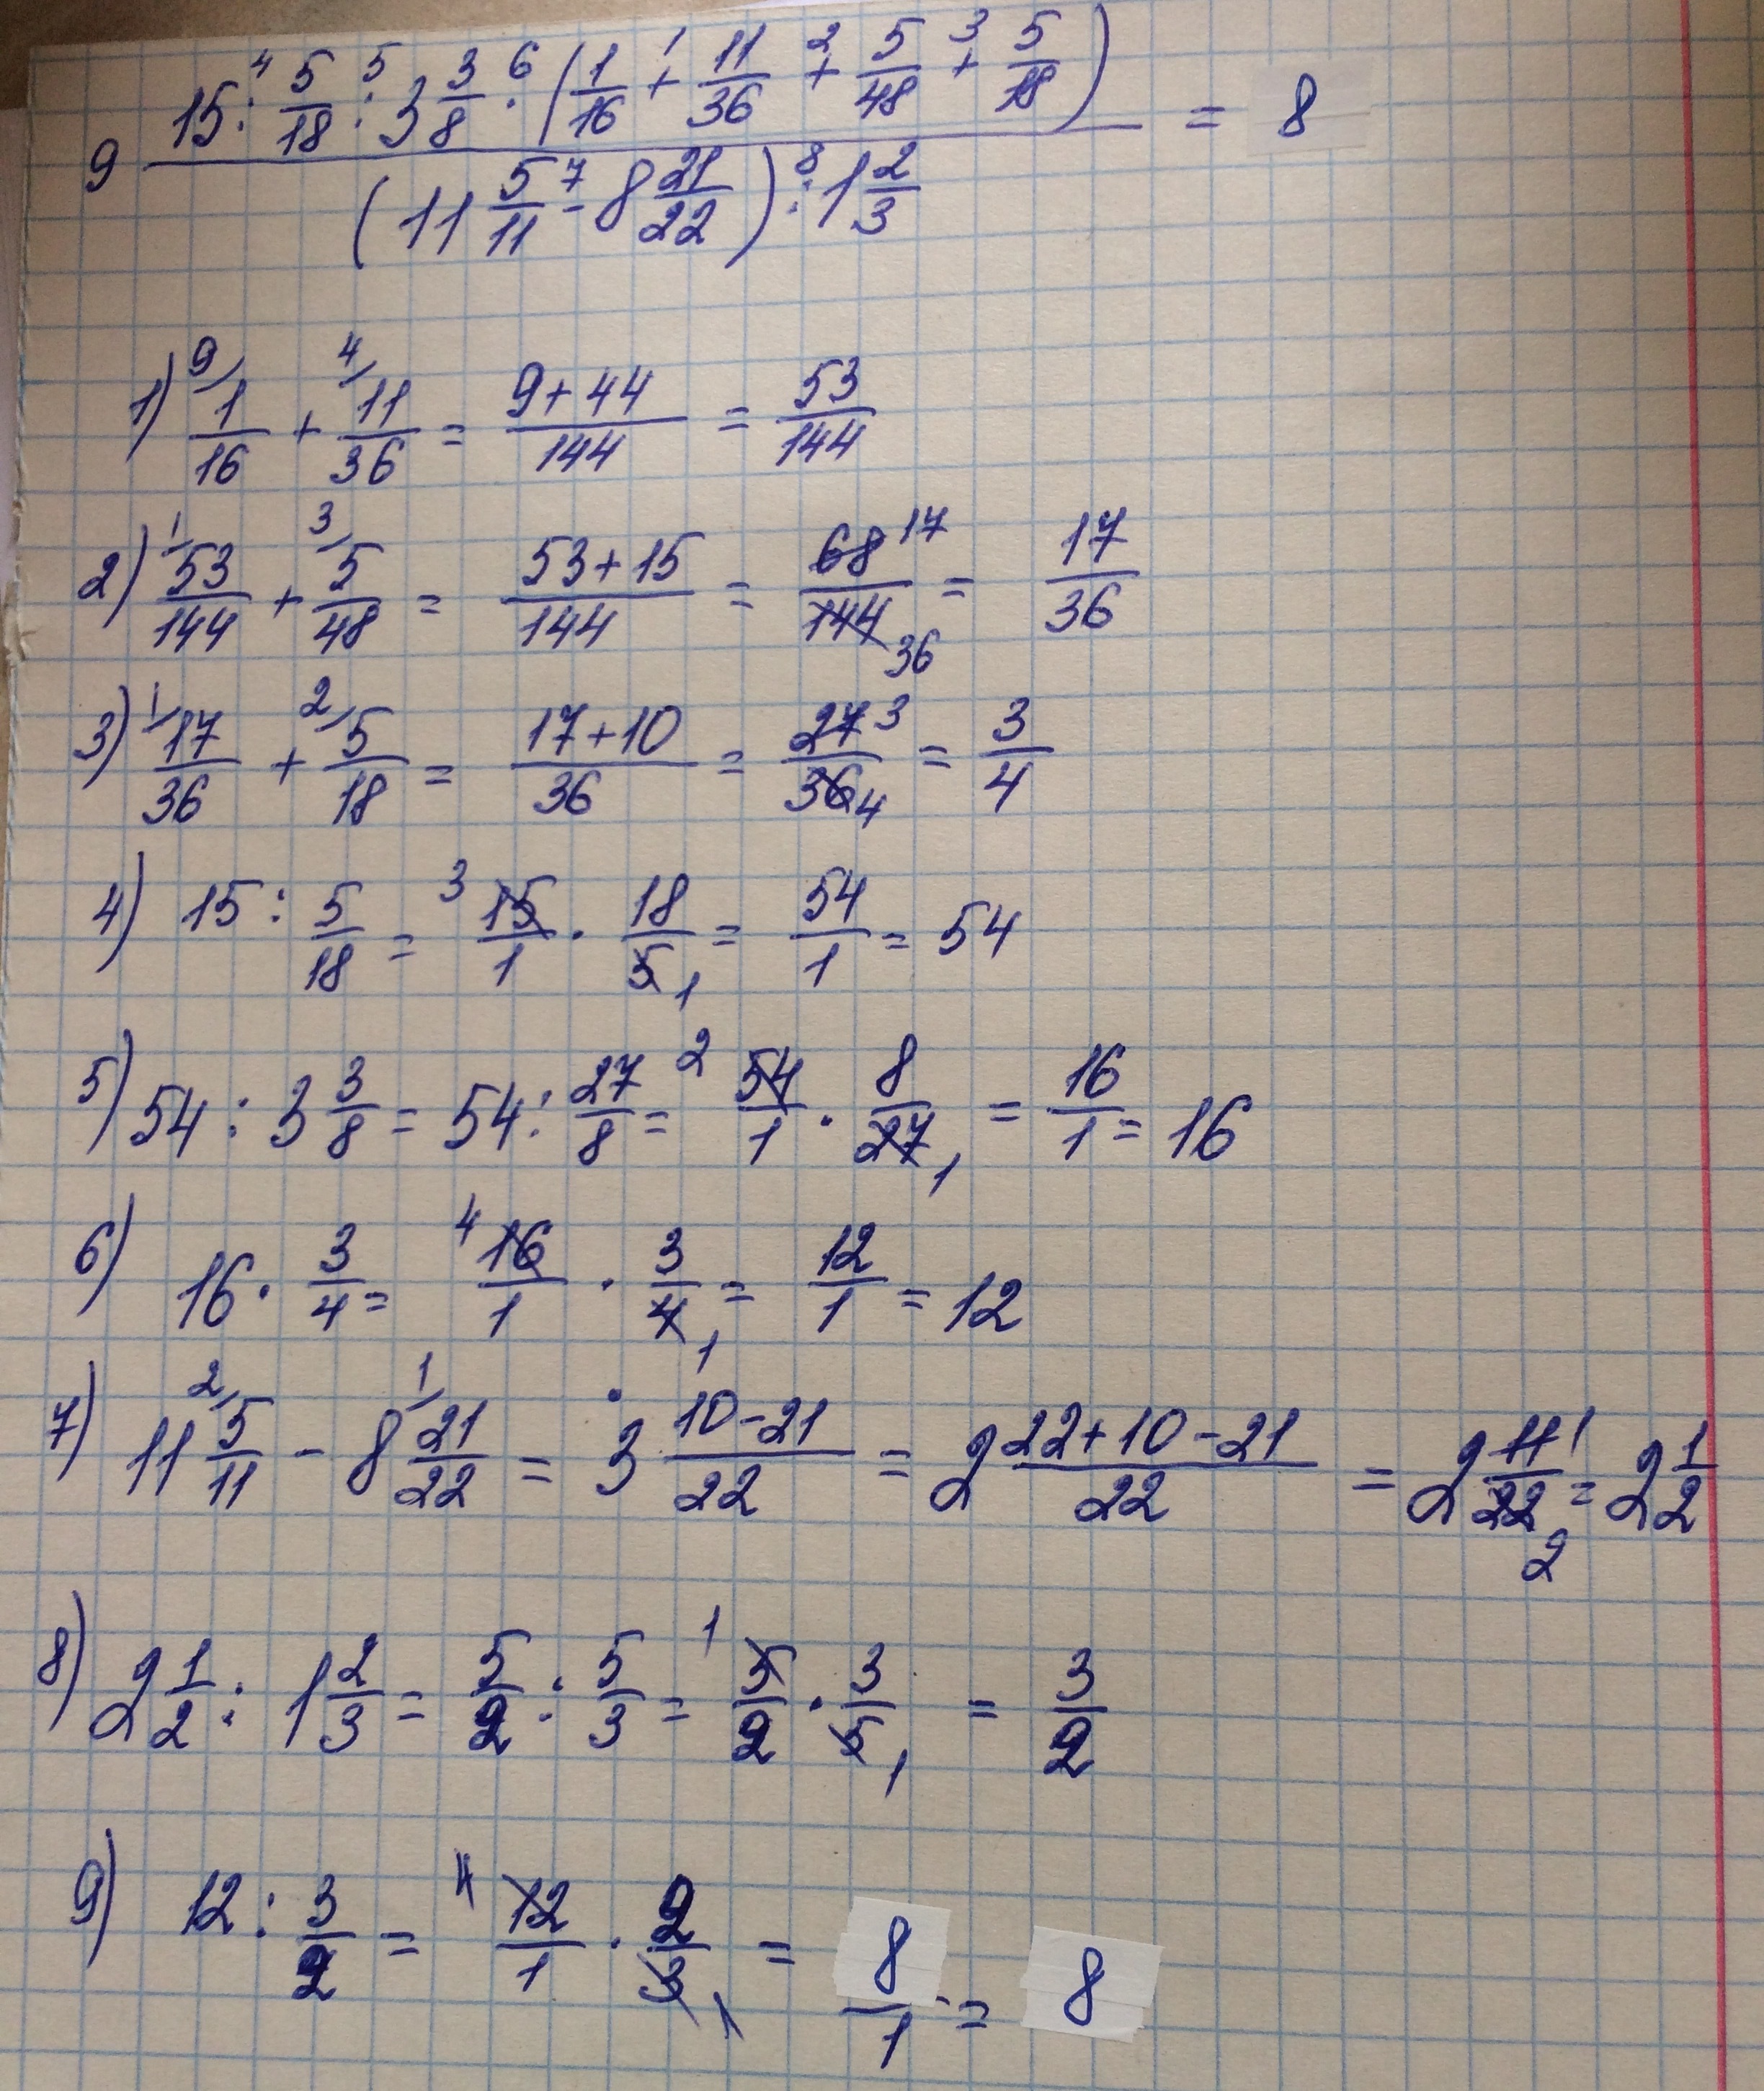 9 (15 :⁴ 5/18 :⁵ 3 3/8 ·⁶ (1/16 +¹ 11/36 +² 5/48 +³ 5/18)) / ((11 5/11 -⁷ 8 21/22) :⁸ 1 2/3) = 8
1) ⁹/ 1/16 + ⁴/ 11/36 = (9+44)/144 = 53/144
2) ¹/ 53/144 + ³/ 5/48 = (53+15)/144 = 68 17/144 36 = 17/36
3) ¹/ 17/36 + ²/ 5/18 = (17+10)/36 = 27 3/36 4 = 3/4
4) 15 : 5/18 = 3 15/1 · 18/5 1 = 54/1 = 54
5) 54 : 3 3/8 = 54 : 27/8 = 2 54/1 · 8/27 1 = 16/1 = 16
6) 16 · 3/4 = 4 16/1 · 3/4 1 = 12/1 = 12
7) 11 ²/ 5/11 - 8 ¹/ 21/22 = 3 (10-21)/22 = 2 (22+10-21)/22 = 2 11 1/22 2 = 2 1/2
8) 2 1/2 : 1 2/3 = 5/2 : 5/3 = 1 5/2 · 3/5 1 = 3/2
9) 12 : 3/2 = 4 12/1 · 2/3 1 = 8/1 = 8